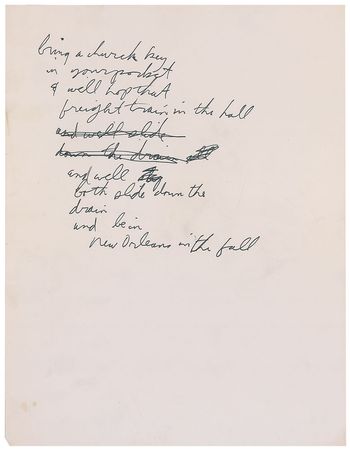 bring a church key
in your pocket
& well hop that
freight train in the hall
and well slide
down the drain all
and well
both slide down the
drain
and be in
new Orleans in the fall